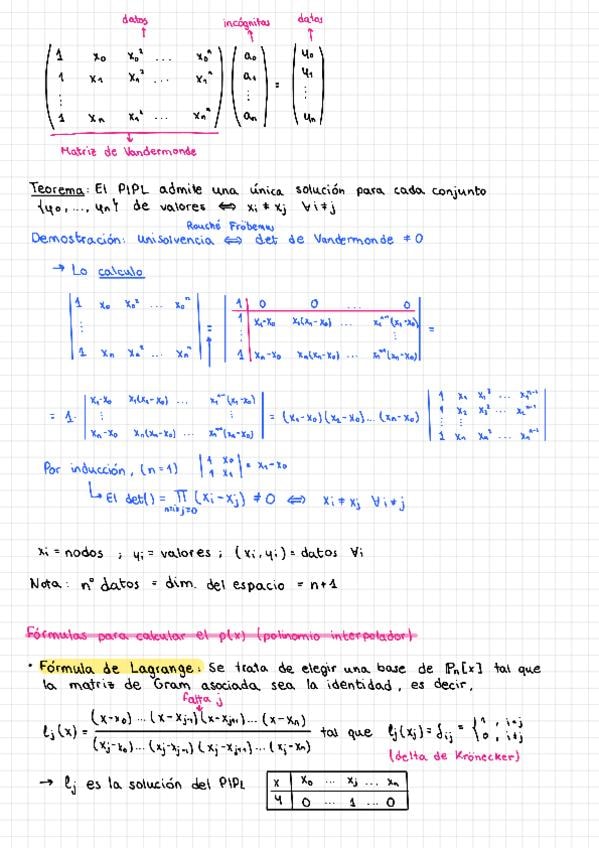 datos incógnitas datos
1 x₀ x₀² ... x₀ⁿ a₀ y₀
1 x₁ x₁² ... x₁ⁿ a₁ = y₁
⋮ ⋮ ⋮
1 xₙ xₙ² ... xₙⁿ aₙ yₙ
Matriz de Vandermonde
Teorema: El PIPL admite una única solución para cada conjunto
{y₀, ..., yₙ} de valores ⟺ xᵢ ≠ xⱼ ∀i≠j
Rouché Fröbenius
Demostración: unisolvencia ⟺ det de Vandermonde ≠ 0
→ Lo calculo
|1 x₀ x₀² ... x₀ⁿ| |1 0 0 ... 0|
|⋮| = |1 x₁-x₀ x₁(x₁-x₀) ... x₁ⁿ⁻¹(x₁-x₀)| =
|1 xₙ xₙ² ... xₙⁿ| |1 xₙ-x₀ xₙ(xₙ-x₀) ... xₙⁿ⁻¹(xₙ-x₀)|
|x₁-x₀ x₁(x₁-x₀) ... x₁ⁿ⁻¹(x₁-x₀)| |1 x₁ x₁² ... x₁ⁿ⁻¹|
= 1· |⋮ ⋮| = (x₁-x₀)(x₂-x₀)...(xₙ-x₀) |1 x₂ x₂² ... x₂ⁿ⁻¹|
|xₙ-x₀ xₙ(xₙ-x₀) ... xₙⁿ⁻¹(xₙ-x₀)| |1 xₙ xₙ² ... xₙⁿ⁻¹|
Por inducción, (n=1) |1 x₀; 1 x₁| = x₁-x₀
↳ El det() = ∏ (xᵢ-xⱼ) ≠ 0 ⟺ xᵢ ≠ xⱼ ∀i≠j
n≥i>j=0
xᵢ = nodos ; yᵢ = valores ; (xᵢ, yᵢ) = datos ∀i
Nota: nº datos = dim. del espacio = n+1
Fórmulas para calcular el p(x) (polinomio interpolador)
• Fórmula de Lagrange: Se trata de elegir una base de ℙₙ[x] tal que
la matriz de Gram asociada sea la identidad, es decir,
falta j
ℓⱼ(x) = (x-x₀)...(x-xⱼ₋₁)(x-xⱼ₊₁)...(x-xₙ) / (xⱼ-x₀)...(xⱼ-xⱼ₋₁)(xⱼ-xⱼ₊₁)...(xⱼ-xₙ) tal que ℓⱼ(xⱼ) = δᵢⱼ = {1, i=j; 0, i≠j
(delta de Krönecker)
→ ℓⱼ es la solución del PIPL
x x₀ ... xⱼ ... xₙ
y 0 ... 1 ... 0